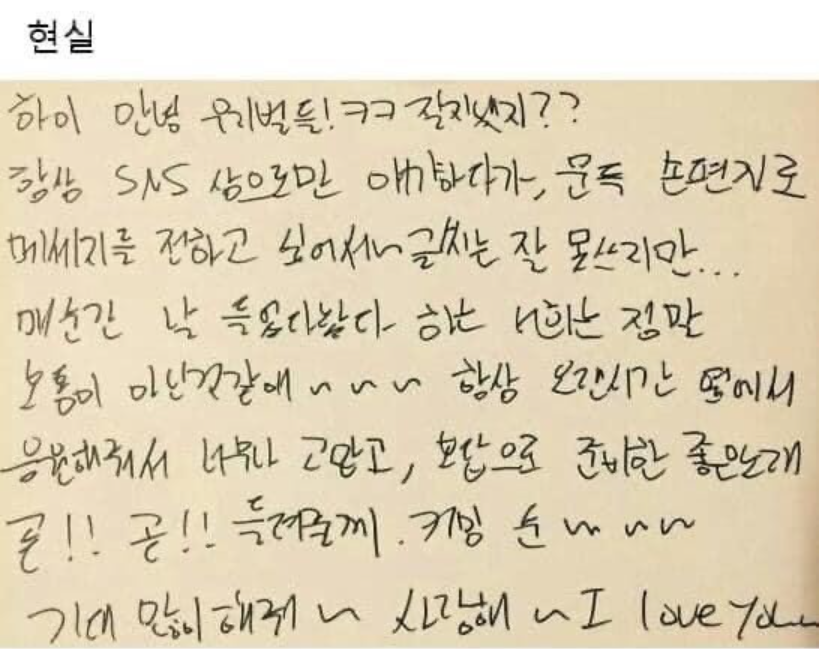 현실
하이 안녕 우리벌들!ㅋㅋ 잘지냈지??
항상 SNS 상으로만 얘기하다가, 문득 손편지로
메세지를 전하고 싶어서~ 글씨는 잘 못쓰지만...
매순간 날 들었다놨다 하는 너희는 정말
보통이 아닌것같애 ~ ~ ~ 항상 오랜시간 옆에서
응원해줘서 너무나 고맙고, 보답으로 준비한 좋은노래
곧!! 곧!! 들려줄께. 커밍 순 ~ ~ ~
기대 많이해줘 ~ 사랑해 ~ I love You~